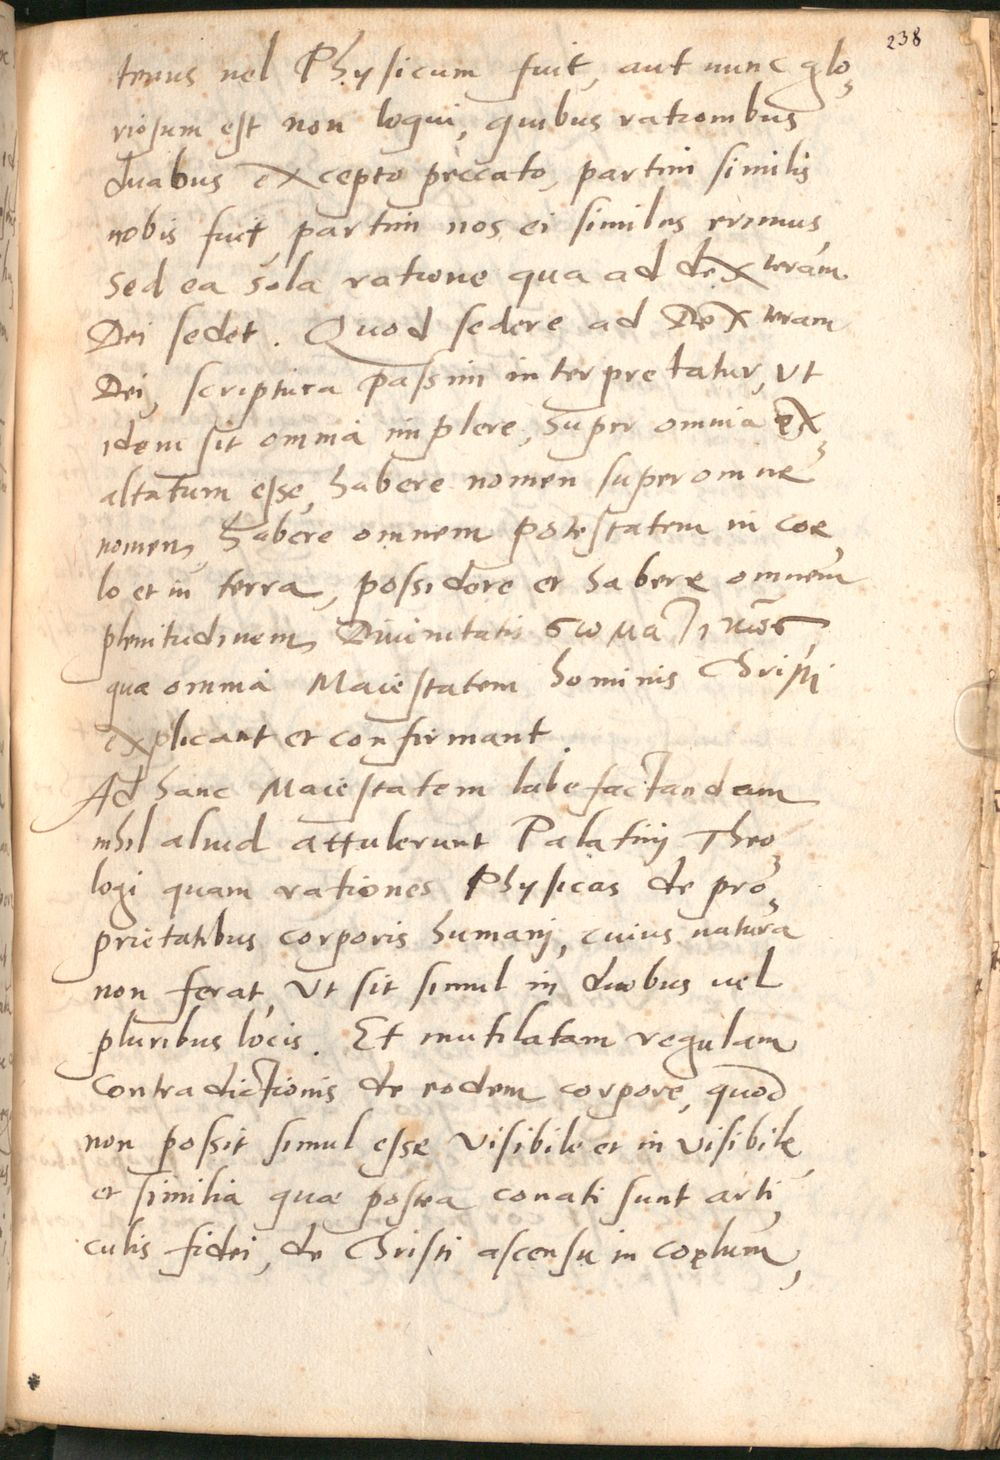 238
tenus uel Physicum fuit, aut nunc glo,
riosum est non loqui, quibus rationibus
duabus excepto peccato, partim similis
nobis fuit, partim nos ei similes erimus,
Sed ea sola ratione qua ad dexteram
Dei sedet. Quod sedere ad Dexteram
Dei, scriptura passim interpretatur, Ut
idem sit omnia implere, super omnia ex,
altatum esse, habere nomen super omne
nomen, habere omnem potestatem in coe,
lo et in terra, possidere et habere omnem
plenitudinem Diuinitatis σωματικῶς
quæ omnia Maiestatem hominis Christi
explicant et confirmant.
Ad hanc Maiestatem labefactandam
nihil aliud attulerunt Palatini Theo,
logi quam rationes Physicas de pro,
prietatibus corporis humani, cuius natura
non ferat, Ut sit simul in duobus uel
pluribus locis. Et mutilatam regulam
Contradictionis de eodem corpore, quod
non possit simul esse Visibile et inVisibile,
et similia quæ postea conati sunt arti,
culis fidei, de Christi ascensu in coelum,